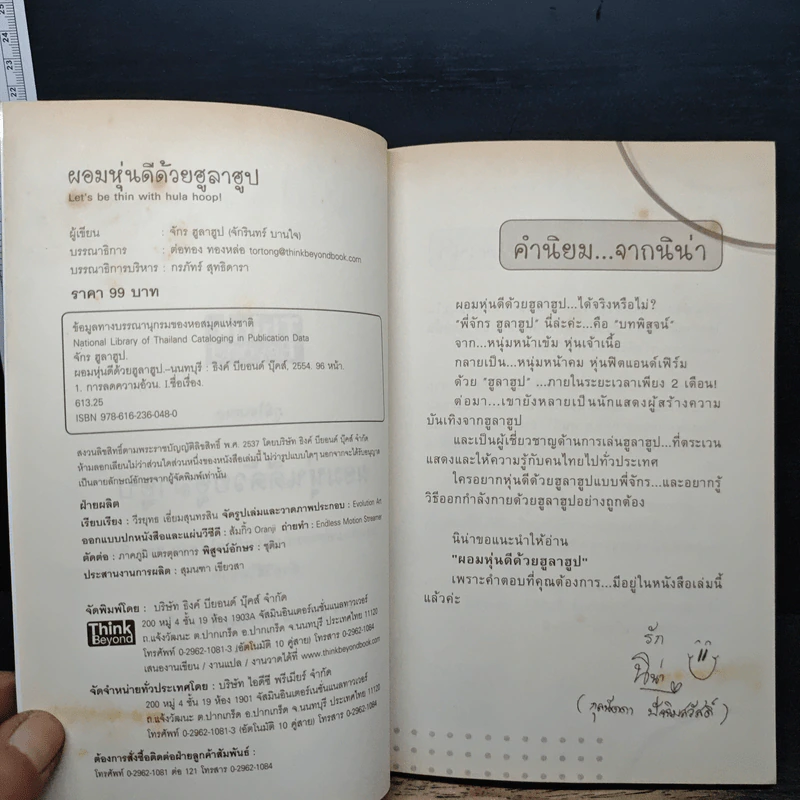 ผอมหุ่นดีด้วยฮูลาฮูป
Let's be thin with hula hoop!
ผู้เขียน : จักร ฮูลาฮูป (จักรินทร์ บานใจ)
บรรณาธิการ : ต่อทอง ทองหล่อ tortong@thinkbeyondbook.com
บรรณาธิการบริหาร : กรภัทร์ สุทธิดารา
ราคา 99 บาท
ข้อมูลทางบรรณานุกรมของหอสมุดแห่งชาติ
National Library of Thailand Cataloging in Publication Data
จักร ฮูลาฮูป.
ผอมหุ่นดีด้วยฮูลาฮูป.--นนทบุรี : ธิงค์ บียอนด์ บุ๊คส์, 2554. 96 หน้า.
1. การลดความอ้วน. I.ชื่อเรื่อง.
613.25
ISBN 978-616-236-048-0
สงวนลิขสิทธิ์ตามพระราชบัญญัติลิขสิทธิ์ พ.ศ. 2537 โดยบริษัท ธิงค์ บียอนด์ บุ๊คส์ จำกัด
ห้ามลอกเลียนไม่ว่าส่วนใดส่วนหนึ่งของหนังสือเล่มนี้ ไม่ว่ารูปแบบใดๆ นอกจากจะได้รับอนุญาต
เป็นลายลักษณ์อักษรจากผู้จัดพิมพ์เท่านั้น
ฝ่ายผลิต
เรียบเรียง : วีรยุทธ เอี่ยมสุนทรสิน จัดรูปเล่มและวาดภาพประกอบ : Evolution Art
ออกแบบปกหนังสือและแผ่นวีซีดี : ส้มกิ้ว Oranji ถ่ายทำ : Endless Motion Streamer
ตัดต่อ : ภาคภูมิ แตรตุลาการ พิสูจน์อักษร : ชุติมา
ประสานงานการผลิต : สุมนฑา เขียวสา
จัดพิมพ์โดย : บริษัท ธิงค์ บียอนด์ บุ๊คส์ จำกัด
Think Beyond
200 หมู่ 4 ชั้น 19 ห้อง 1903A จัสมินอินเตอร์เนชั่นแนลทาวเวอร์
ถ.แจ้งวัฒนะ ต.ปากเกร็ด อ.ปากเกร็ด จ.นนทบุรี ประเทศไทย 11120
โทรศัพท์ 0-2962-1081-3 (อัตโนมัติ 10 คู่สาย) โทรสาร 0-2962-1084
เสนองานเขียน / งานแปล / งานวาดได้ที่ www.thinkbeyondbook.com
จัดจำหน่ายทั่วประเทศโดย : บริษัท ไอดีซี พรีเมียร์ จำกัด
200 หมู่ 4 ชั้น 19 ห้อง 1901 จัสมินอินเตอร์เนชั่นแนลทาวเวอร์
ถ.แจ้งวัฒนะ ต.ปากเกร็ด อ.ปากเกร็ด จ.นนทบุรี ประเทศไทย 11120
โทรศัพท์ 0-2962-1081-3 (อัตโนมัติ 10 คู่สาย) โทรสาร 0-2962-1084
ต้องการสั่งซื้อติดต่อฝ่ายลูกค้าสัมพันธ์ :
โทรศัพท์ 0-2962-1081 ต่อ 121 โทรสาร 0-2962-1084
คำนิยม...จากนิน่า
ผอมหุ่นดีด้วยฮูลาฮูป...ได้จริงหรือไม่?
"พี่จักร ฮูลาฮูป" นี่ล่ะค่ะ...คือ "บทพิสูจน์"
จาก...หนุ่มหน้าเข้ม หุ่นเจ้าเนื้อ
กลายเป็น...หนุ่มหน้าคม หุ่นฟิตแอนด์เฟิร์ม
ด้วย "ฮูลาฮูป" ...ภายในระยะเวลาเพียง 2 เดือน!
ต่อมา...เขายังหลายเป็นนักแสดงผู้สร้างความ
บันเทิงจากฮูลาฮูป
และเป็นผู้เชี่ยวชาญด้านการเล่นฮูลาฮูป...ที่ตระเวน
แสดงและให้ความรู้กับคนไทยไปทั่วประเทศ
ใครอยากหุ่นดีด้วยฮูลาฮูปแบบพี่จักร...และอยากรู้
วิธีออกกำลังกายด้วยฮูลาฮูปอย่างถูกต้อง
นิน่าขอแนะนำให้อ่าน
"ผอมหุ่นดีด้วยฮูลาฮูป"
เพราะคำตอบที่คุณต้องการ...มีอยู่ในหนังสือเล่มนี้
แล้วค่ะ
รัก
นิน่า
25
24
23
22